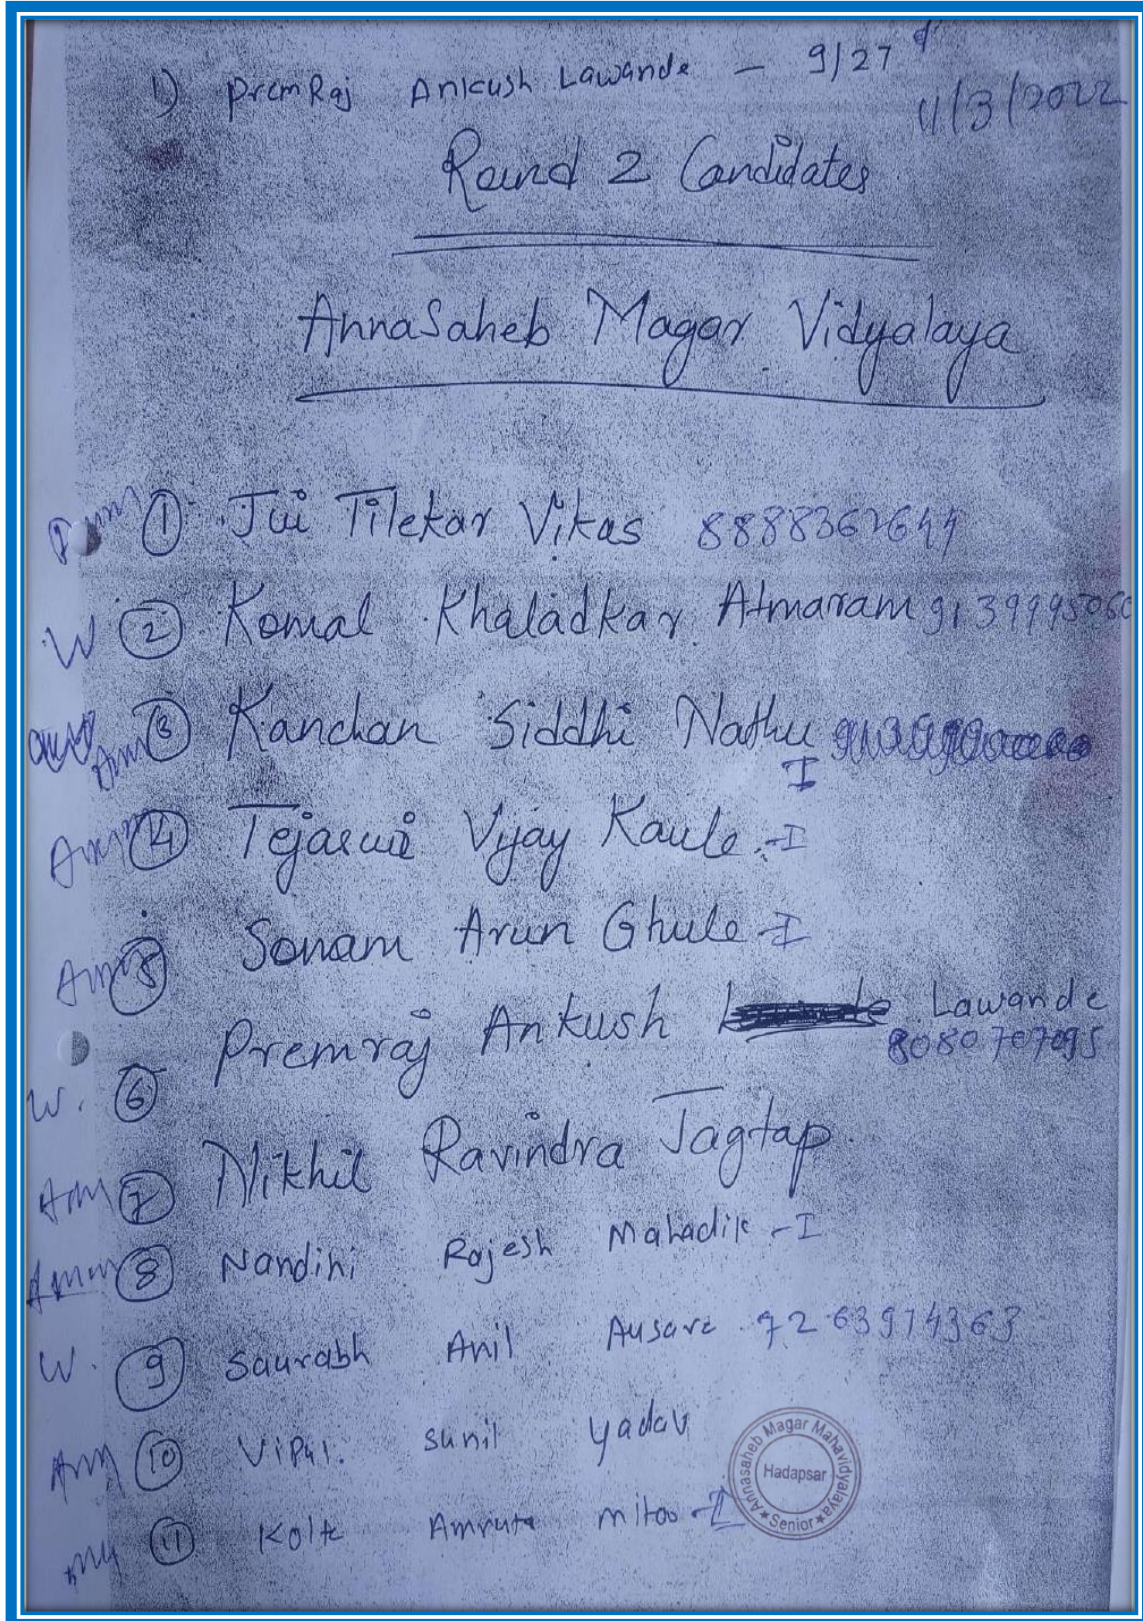 1) PremRaj Ankush Lawande — 9/27
11/3/2022
Round 2 Candidates
AnnaSaheb Magar Vidyalaya
① Jui Tilekar Vikas 8888362644
W ② Komal Khaladkar Atmaram
③ Kanchan Siddhi Nathu
I
④ Tejaswi Vijay Kaule -I
⑤ Sonam Arun Ghule -I
W. ⑥ Premraj Ankush Lawande
8080707095
⑦ Nikhil Ravindra Jagtap
⑧ Nandini Rajesh Mahadik -I
W. ⑨ Saurabh Anil Ausare
⑩ Vipul. Sunil Yadav
⑪ Kolte Amruta -I
Annasaheb Magar Mahavidyalaya
Hadapsar
★ Senior ★